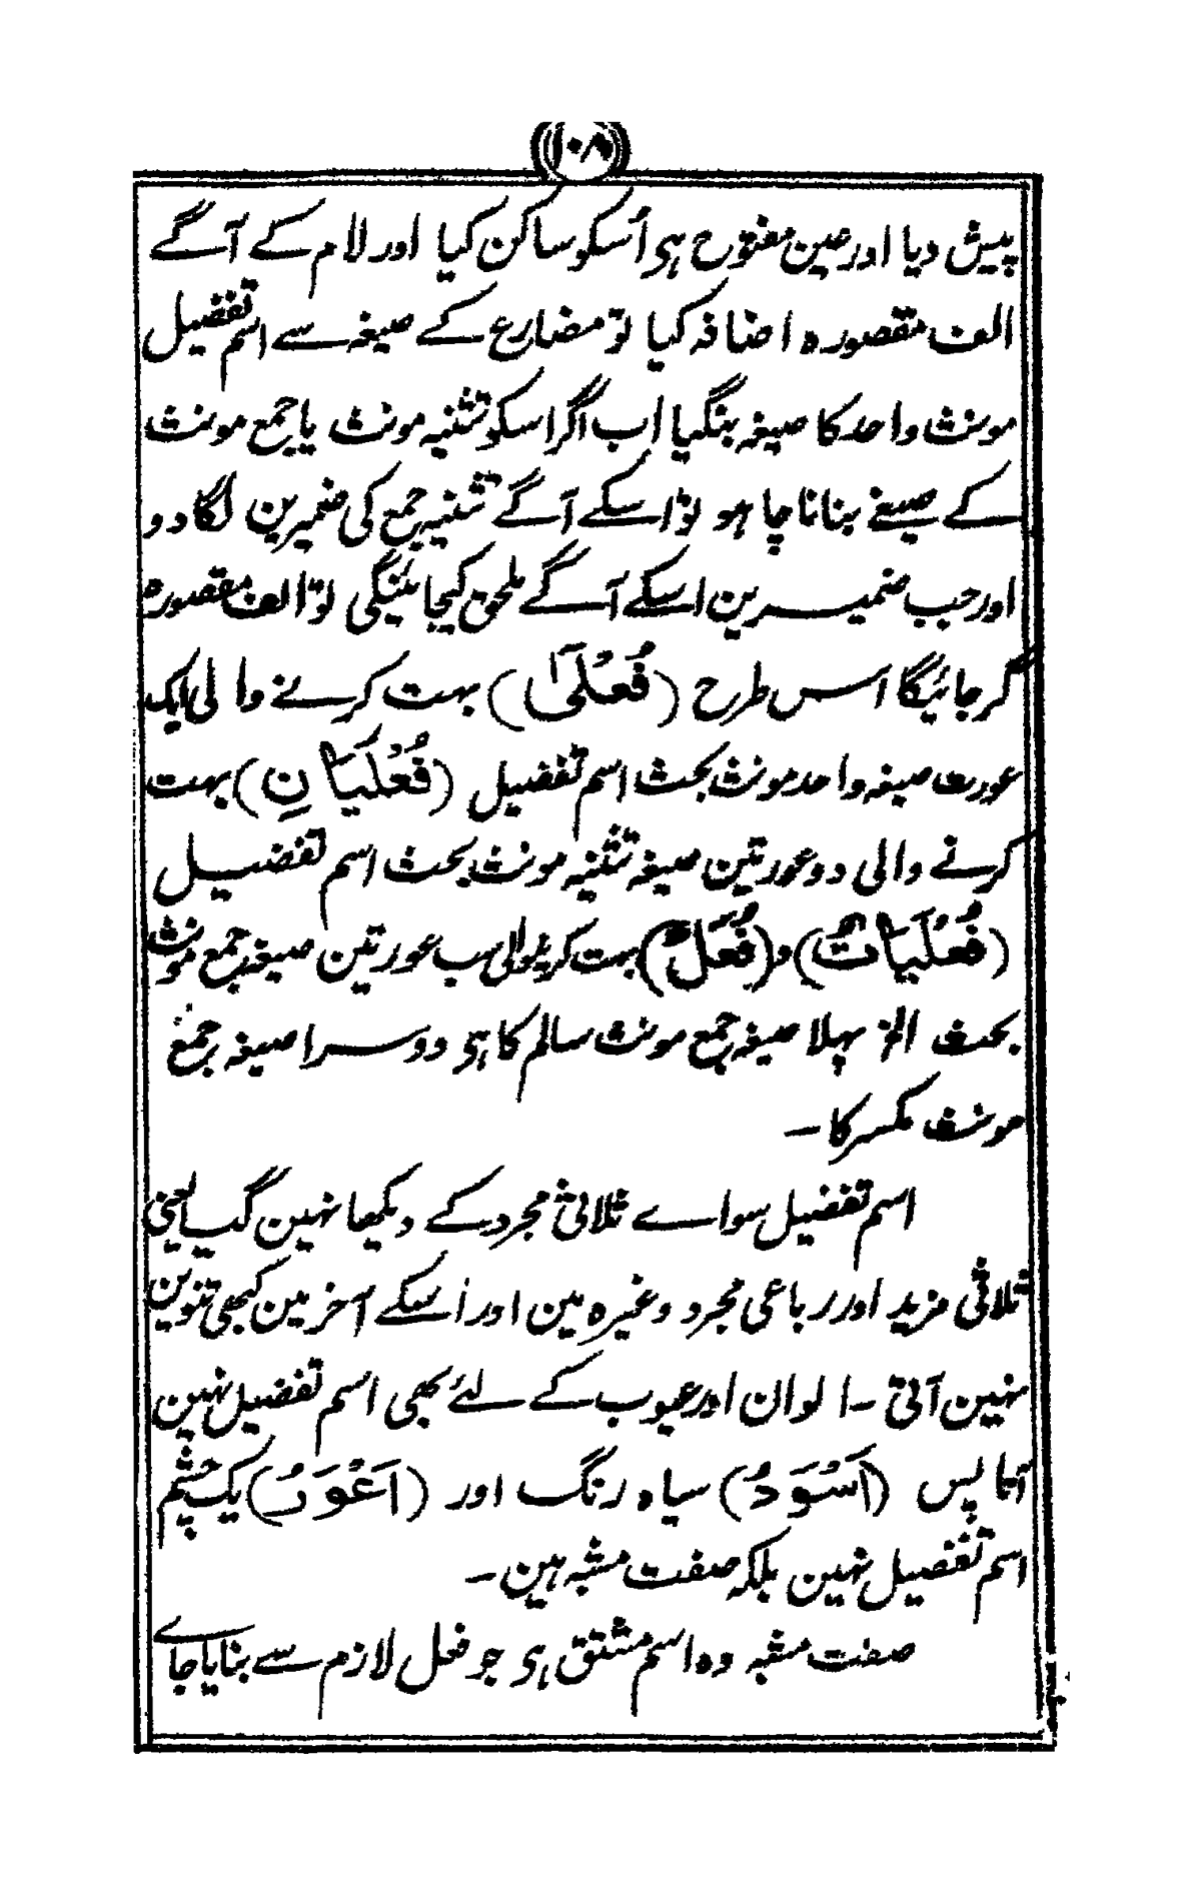 ۱۰۸
پیش دیا اور عین مفتوح ہی اُسکو ساکن کیا اور لام کے آگے
الف مقصورہ اضافہ کیا تو مضارع کے صیغہ سے اسم تفضیل
مونث واحد کا صیغہ بنگیا اب اگر اسکو تثنیہ مونث یا جمع مونث
کے صیغے بنانا چاہو تو اسکے آگے تثنیہ جمع کی ضمیرین لگا دو
اور جب ضمیرین اسکے آگے ملحق کیجائینگی تو الف مقصورہ
گر جائیگا اس طرح (فُعْلٰی) بہت کرنے والی ایک
عورت صیغہ واحد مونث بحث اسم تفضیل (فُعْلَیَانِ) بہت
کرنے والی دو عورتین صیغہ تثنیہ مونث بحث اسم تفضیل
(فُعْلَیَاتٌ) و (فُعَلٌ) بہت کرنیوالی سب عورتین صیغہ جمع مونث
بحث الخ پہلا صیغہ جمع مونث سالم کا ہی دوسرا صیغہ جمع
مونث مکسر کا ۔
اسم تفضیل سواے ثلاثی مجرد کے دیکھا نہین گیا یعنی
ثلاثی مزید اور رباعی مجرد وغیرہ مین اور اُسکے آخر مین کبھی تنوین
نہین آتی ۔ الوان اور عیوب کے لئے بھی اسم تفضیل نہین
آتا پس (اَسْوَدُ) سیاہ رنگ اور (اَعْوَرُ) یک چشم
اسم تفضیل نہین بلکہ صفت مشبہ ہین ۔
صفت مشبہ وہ اسم مشتق ہی جو فعل لازم سے بنایا جاے